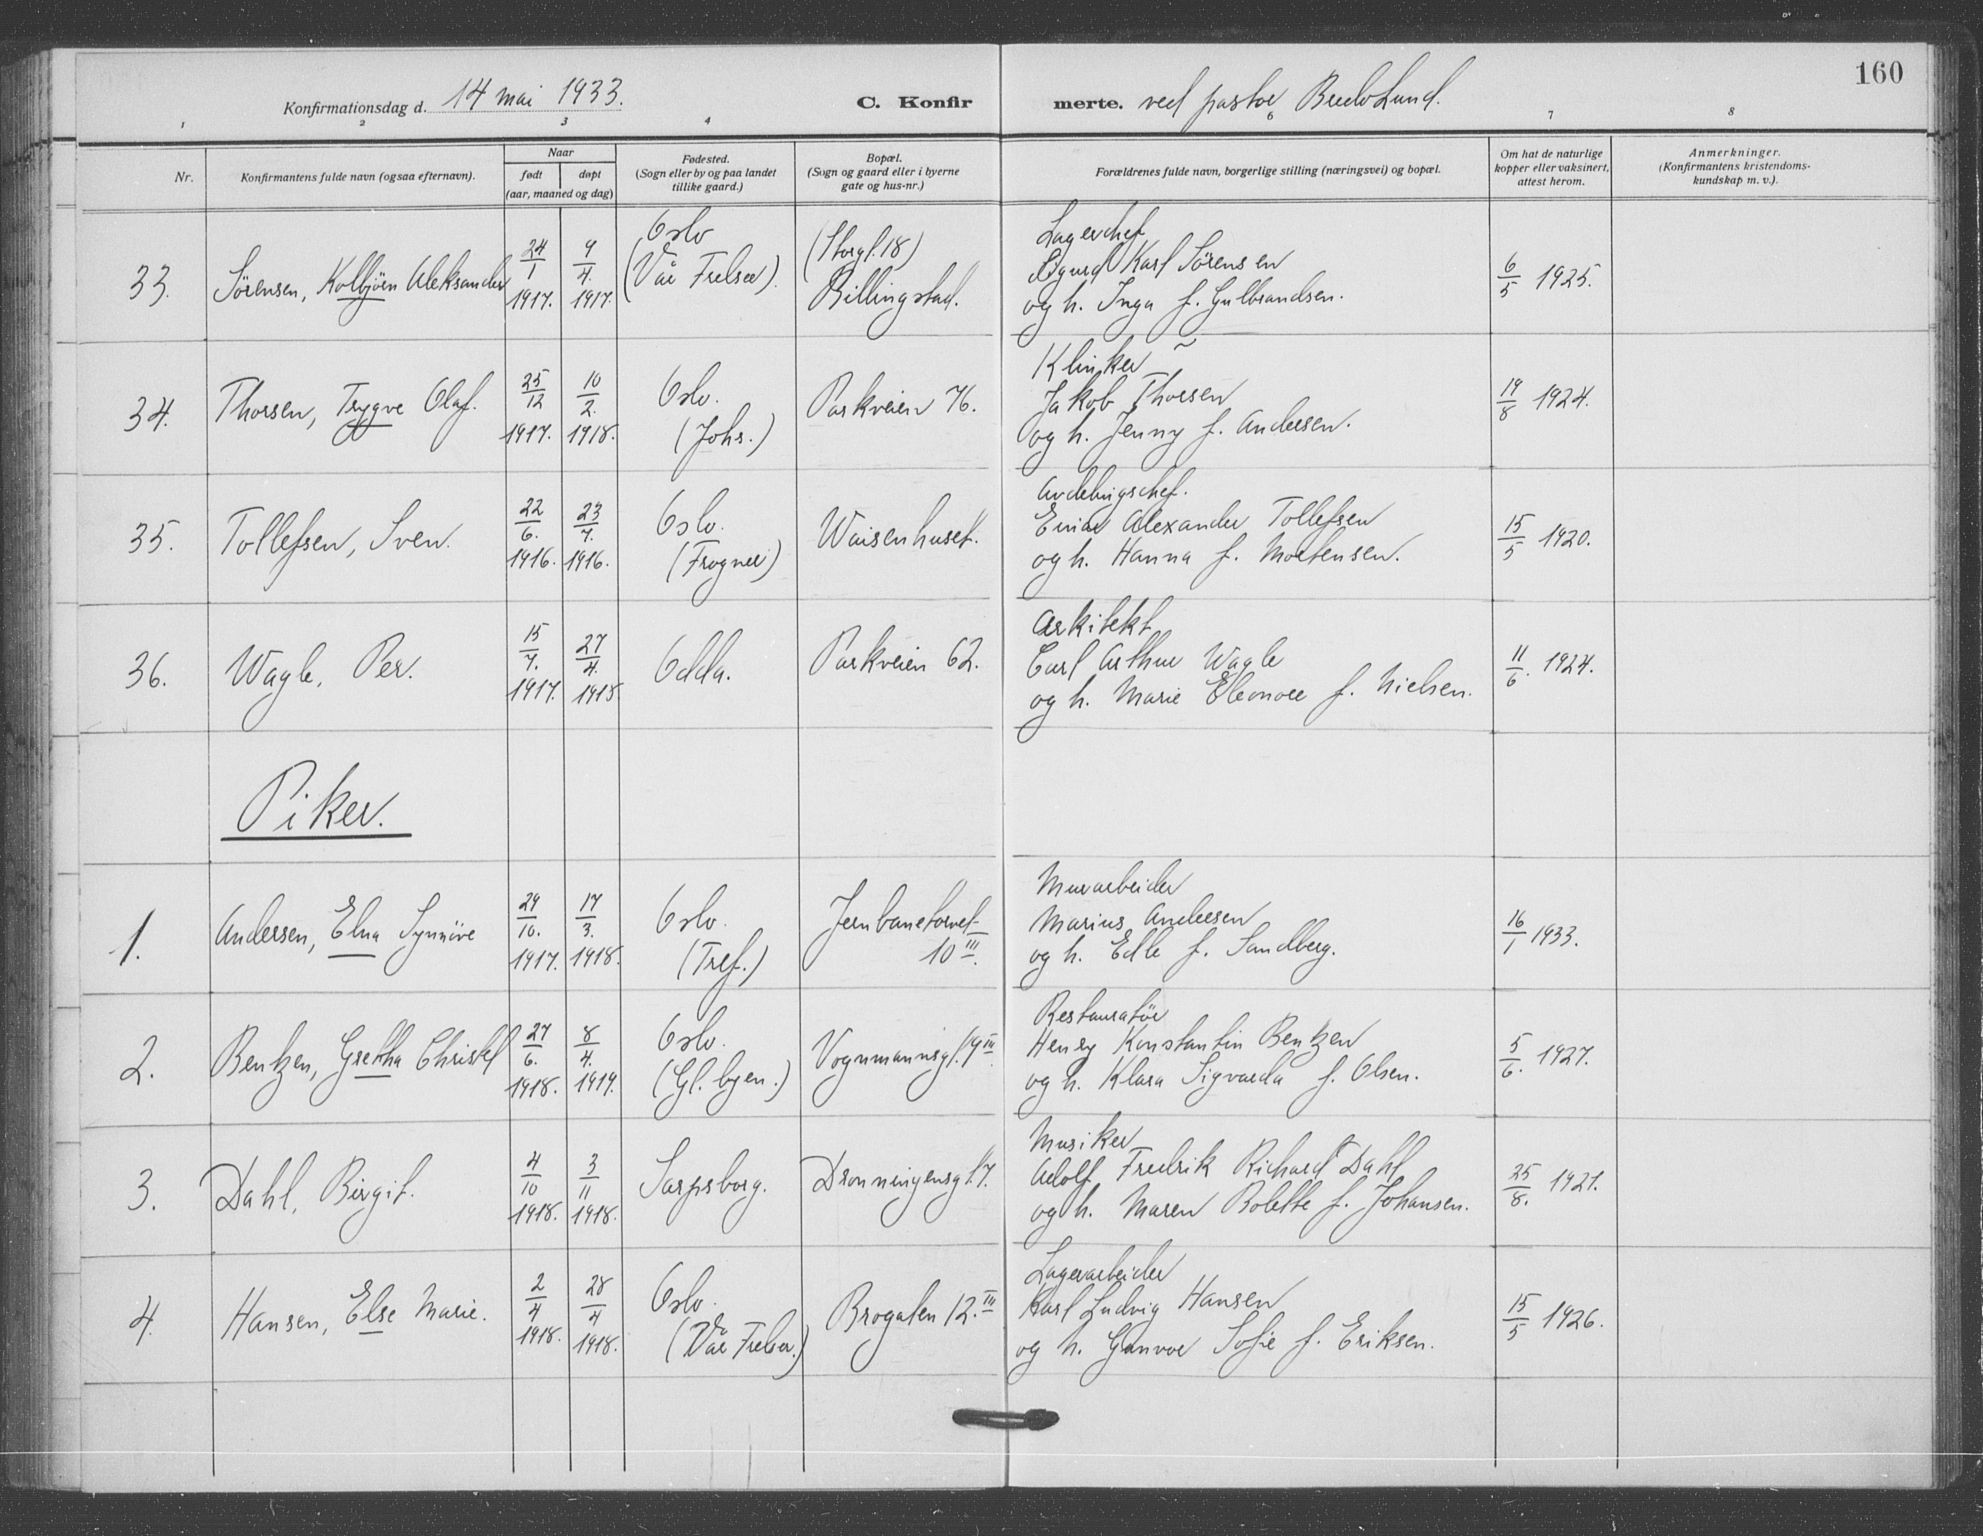 160
Konfirmationsdag d. 14 mai 1933. C. Konfirmerte. ved pastor Lund.
1 2 3 4 6 7 8
Nr.
Konfirmantens fulde navn (ogsaa efternavn).
Naar
født døpt
(aar, maaned og dag)
Fødested.
(Sogn eller by og paa landet
tillike gaard.)
Bopæl.
(Sogn og gaard eller i byerne
gate og hus-nr.)
Forældrenes fulde navn, borgerlige stilling (næringsvei) og bopæl.
Om hat de naturlige
kopper eller vaksinert,
attest herom.
Anmerkninger.
(Konfirmantens kristendoms-
kundskap m. v.).
33. Sørensen, Kolbjörn Aleksander
24/1 1917. 9/4. 1917.
Oslo
(Vår Frelser).
(Storgt. 18)
Billingstad.
Lagerchef
Sigurd Karl Sörensen
og h. Inga f. Gulbrandsen.
6/5 1925.
34. Thorsen, Trygve Olaf.
25/12 1917. 10/2. 1918.
Oslo.
(Johs.)
Parkveien 76.
Klinker
Jakob Thorsen
og h. Jenny f. Andersen.
19/8 1924.
35. Tollefsen, Sven.
22/6. 1916. 23/7. 1916.
Oslo.
(Frogner)
Waisenhuset.
Avdelingschef.
Einar Alexander Tollefsen
og h. Hanna f. Mortensen.
15/5 1920.
36. Wagle, Per.
15/7. 1917. 27/4. 1918
Odda.
Parkveien 62.
Arkitekt
Carl Arthur Wagle
og h. Marie Eleonore f. Nielsen.
11/6. 1924.
Piker.
1. Andersen, Elna Synnöve
29/10. 1917. 17/3. 1918.
Oslo.
(Tref.)
Jernbanetorvet
10 III.
Murarbeider
Marius Andersen
og h. Edle f. Sandberg.
16/1 1933.
2. Bentzen, Grethe Christel
27/6. 1918. 8/4. 1919.
Oslo.
(Gl. byen.)
Vognmannsgt. 19 III
Restauratör
Henry Konstantin Bentzen
og h. Klara Sigvarda f. Olsen.
5/6. 1927.
3. Dahl, Birgit.
4/10 1918. 3/11 1918.
Sarpsborg.
Dronningensgt. 7.
Musiker
Adolf Fredrik Richard Dahl
og h. Maren Bolette f. Johansen.
25/8. 1921.
4. Hansen, Else Marie.
2/4 1918. 28/4 1918.
Oslo.
(Vår Frelser.)
Brogaten 12. III
Lagerarbeider
Karl Ludvig Hansen
og h. Gunvor Sofie f. Eriksen.
15/5 1926.